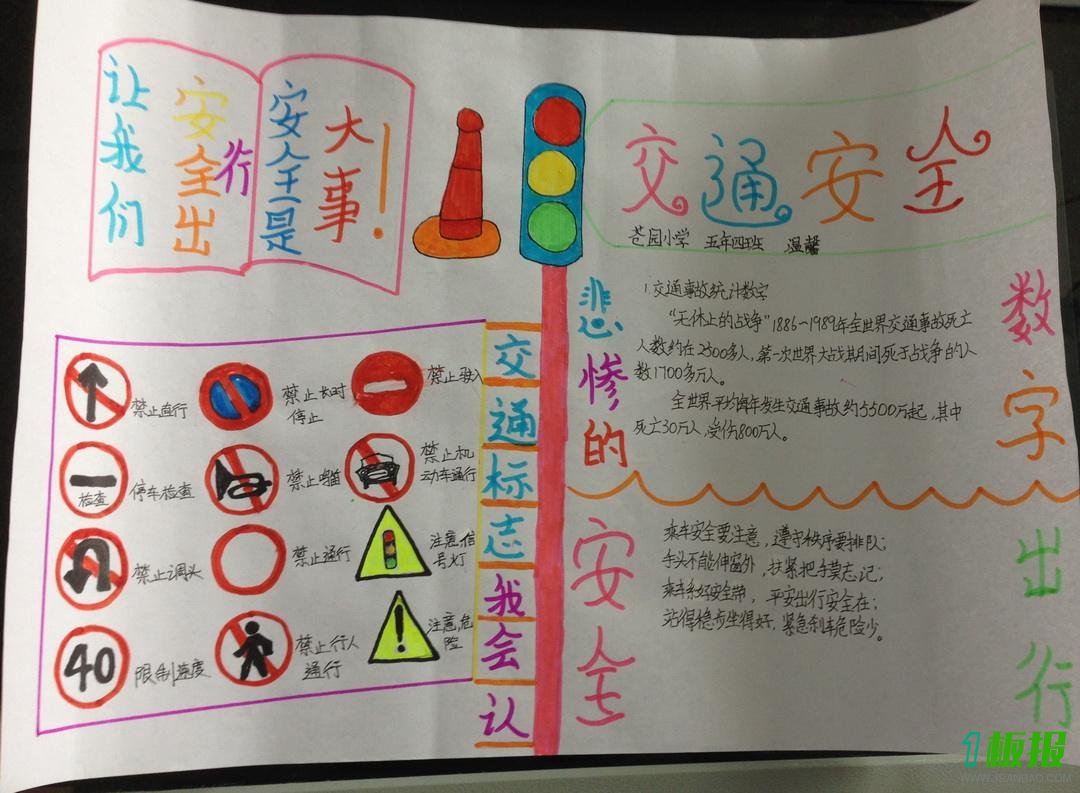 让我们
安全出
行
安全是
大事!
交通安全
苍园小学 五年四班 温馨
交通标志我会认
禁止直行
禁止长时
停止
禁止驶入
检查
停车检查
禁止鸣笛
禁止机
动车通行
禁止调头
禁止通行
注意信
号灯
40
限制速度
禁止行人
通行
注意危
险
悲惨的
数字
1.交通事故统计数字
“无休止的战争”1886~1989年全世界交通事故死亡
人数约在2500多人,第一次世界大战其期间死于战争的人
数1700多万人。
全世界平均每年发生交通事故约5500万起,其中
死亡30万人,受伤800万人。
安全
出行
乘车安全要注意,遵守秩序要排队;
手头不能伸窗外,扶紧把手莫忘记;
乘车系好安全带,平安出行安全在;
站得稳步坐得好,紧急刹车危险少。
1板报
WWW.1BANBAO.COM